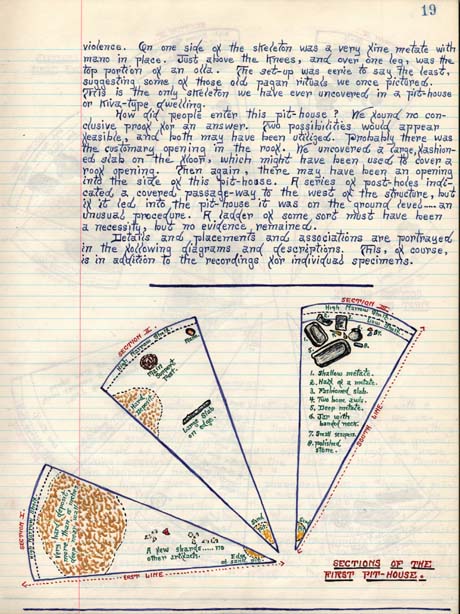 19
violence. On one side of the skeleton was a very fine metate with
mano in place. Just above the knees, and over one leg, was the
top portion of an olla. The set-up was eerie to say the least,
suggesting some of those old pagan rituals we once pictured.
This is the only skeleton we have ever uncovered in a pit-house
or Kiva-type dwelling.
How did people enter this pit-house? We found no con-
clusive proof for an answer. Two possibilities would appear
feasible, and both may have been utilized. Probably there was
the customary opening in the roof. We uncovered a large, fashion-
ed slab on the floor, which might have been used to cover a
roof opening. Then again, there may have been an opening
into the side of this pit-house. A series of post-holes indi-
cated a covered passage-way to the west of the structure, but
if it led into the pit-house it was on the ground level.....an
unusual procedure. A ladder of some sort must have been
a necessity, but no evidence remained.
Details and placements and associations are portrayed
in the following diagrams and descriptions. This, of course,
is in addition to the recordings for individual specimens.
SECTION II.
High Narrow Shelf.
Main
Support
Post.
Large Slab
on edge.
SECTION III.
High Narrow Shelf.
Low Shelf
1. Shallow metate.
2. Half of a metate.
3. Fashioned slab.
4. Two bone awls.
5. Deep metate.
6. Jar with
banded neck.
7. Small scrapers.
8. polished
stone.
SOUTH LINE
SECTION I.
Very hard deposit
A few shards.....no
other artifacts.
Edge
EAST LINE
SECTIONS OF THE
FIRST PIT-HOUSE.